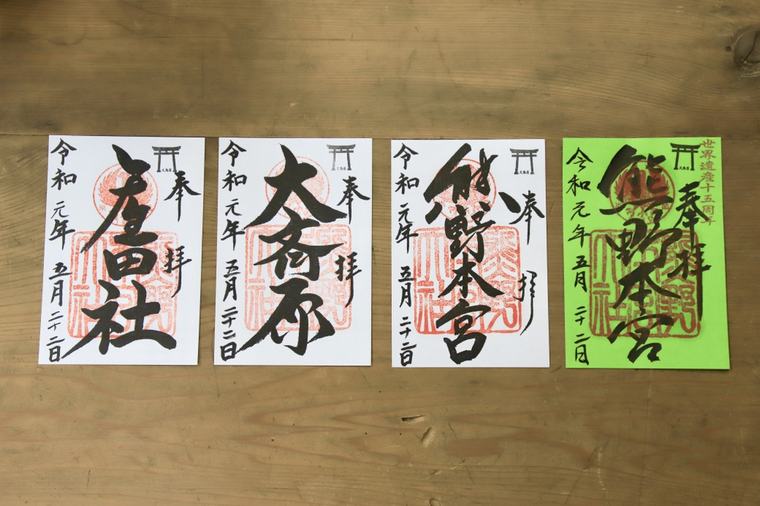 奉拝
産田社
令和元年五月二十二日
奉拝
大斎原
令和元年五月二十二日
奉拝
熊野本宮
令和元年五月二十二日
世界遺産十五周年
奉拝
熊野本宮
令和元年五月二十二日